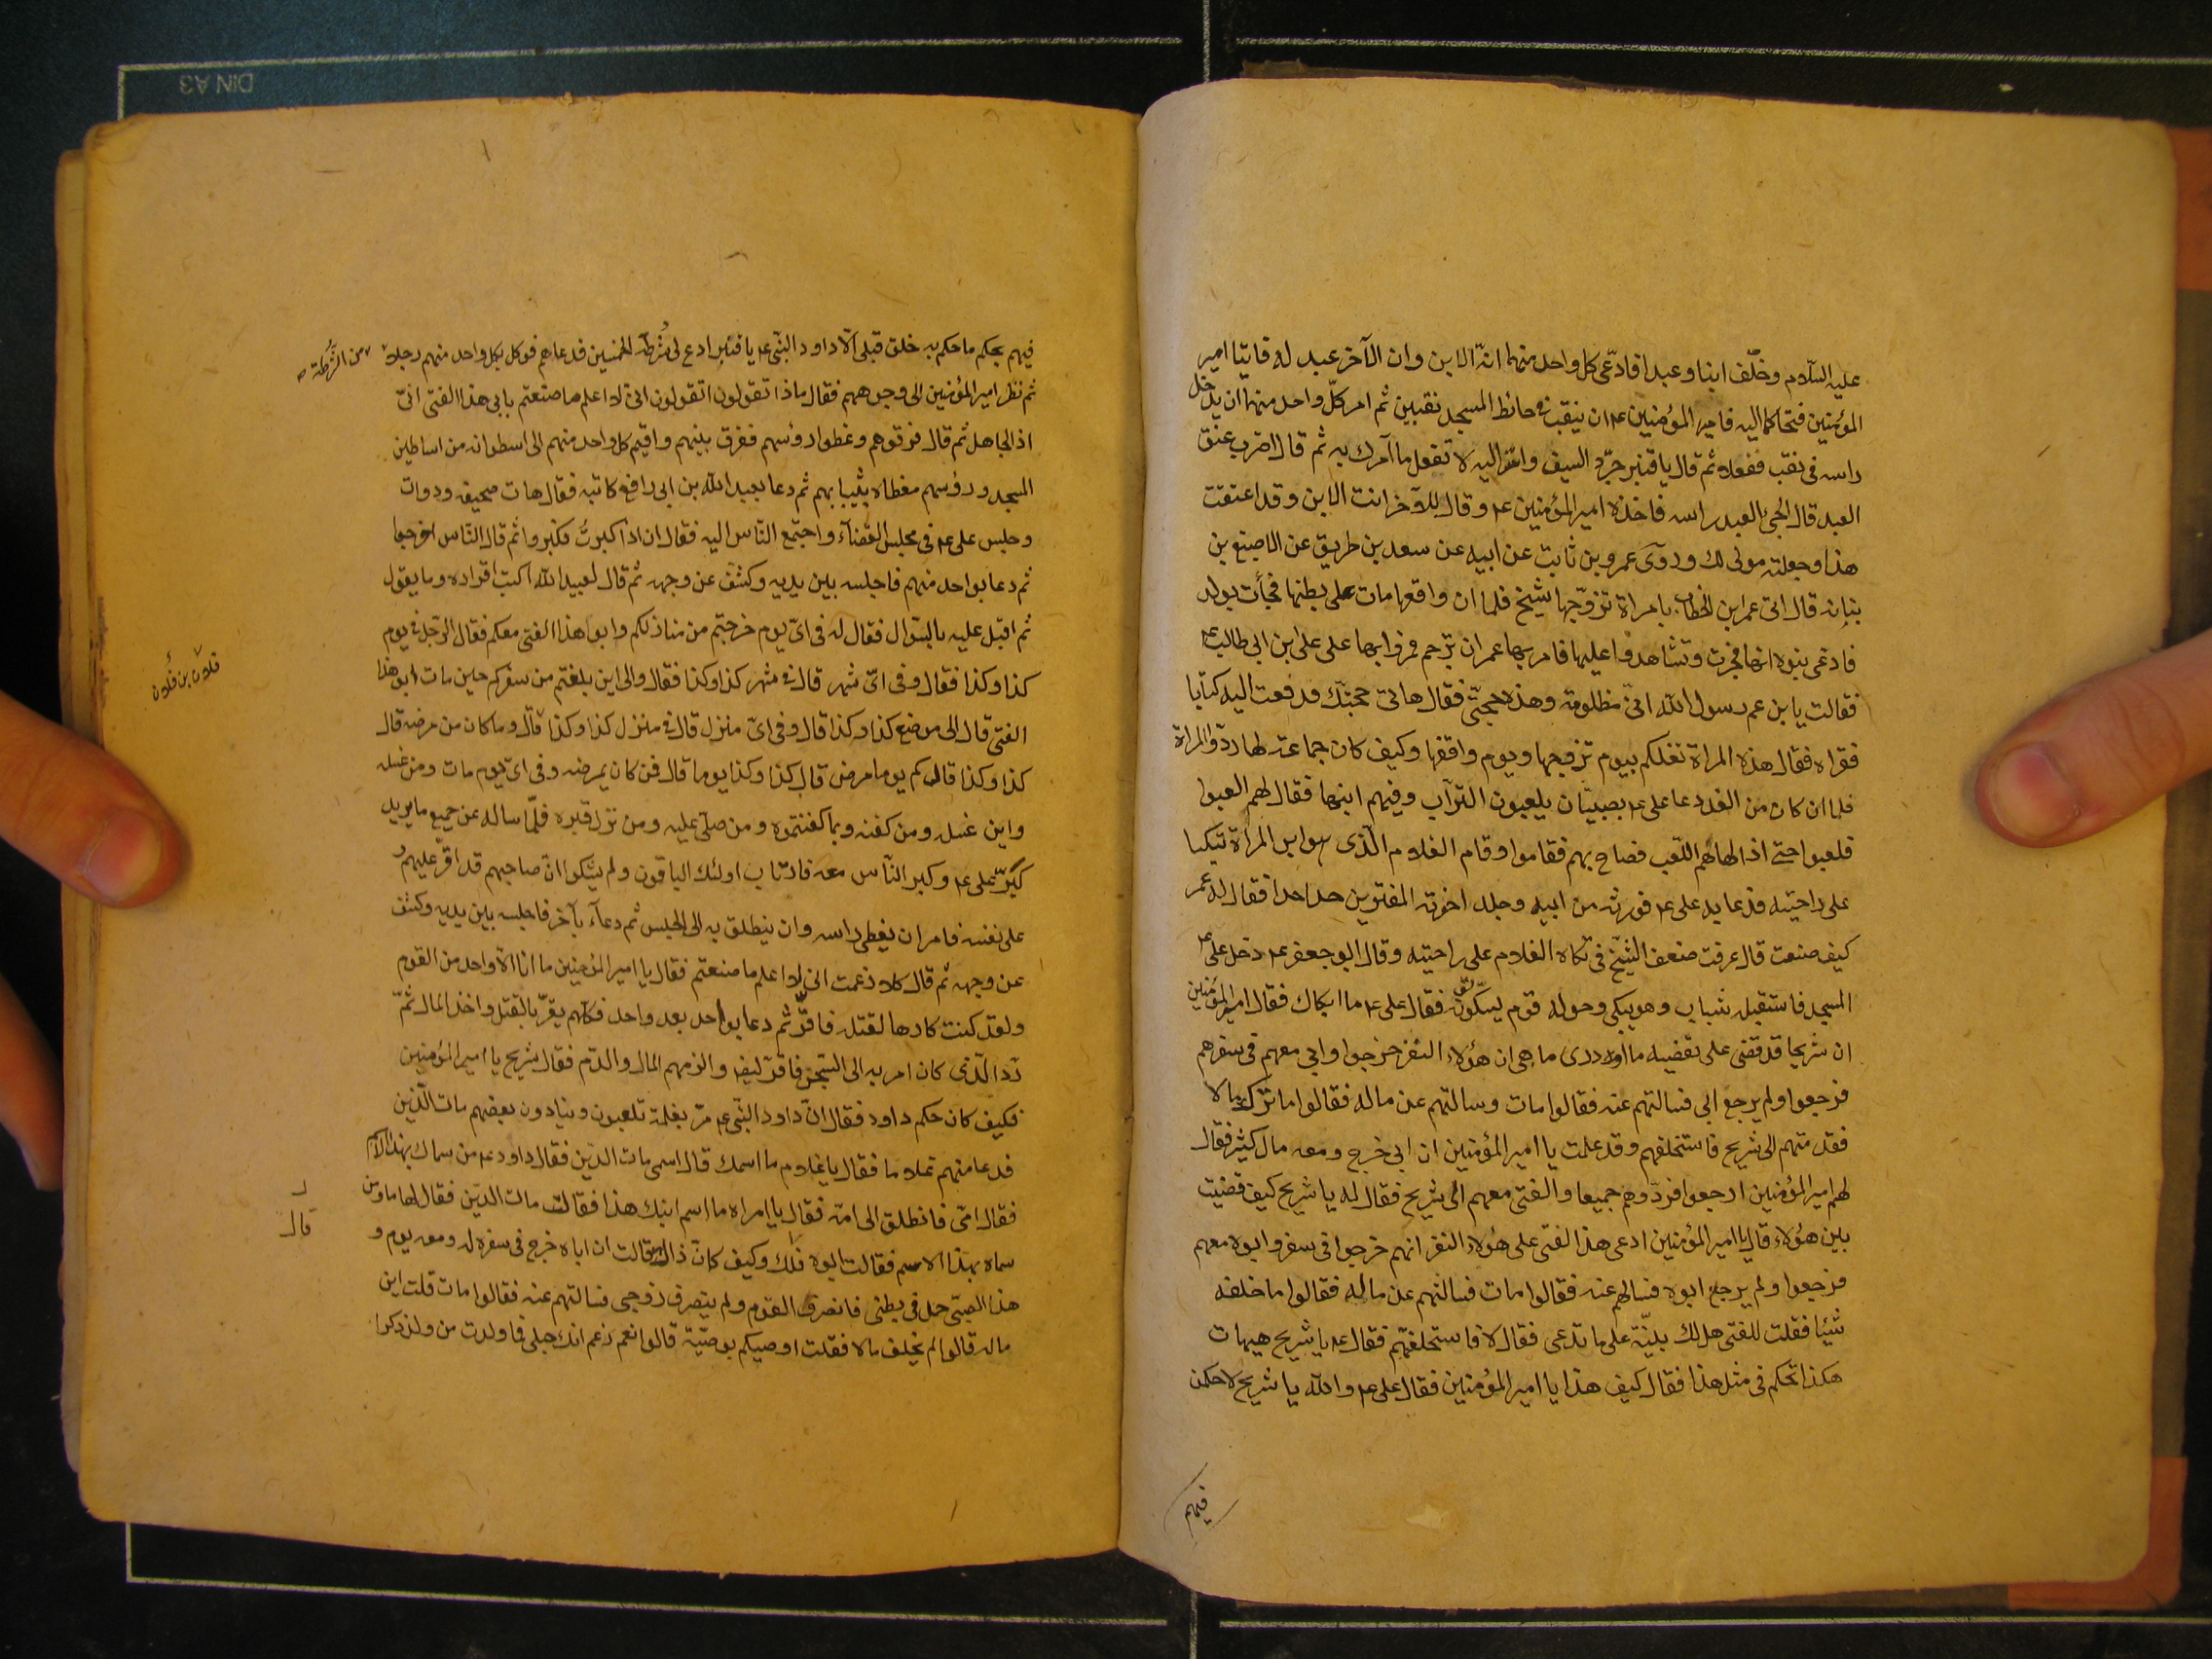 عليه السّلام وخلّف ابنا وعبدا فادّعى كل واحد منهما انّه الابن وان الآخر عبد له فاتيا امير
المؤمنين فتحاكما اليه فامر امير المؤمنين ع م ان ينقب فى حائط المسجد نقبين ثم امر كلّ واحد منهما ان يدخل
راسه فى نقب ففعلا ثم قال يا قنبر جرّد السيف واشر اليه لا تفعل ما آمرك به ثم قال اضرب عنق
العبد قال فنحى العبد راسه فاخذه امير المؤمنين ع م وقال للآخر انت الابن وقد اعتقت
هذا وجعلته مولى لك وروى عمرو بن ثابت عن ابيه عن سعد بن طريق عن الاصبغ بن
نباته قال اتى عمر ابن الخطاب بامراة تزوّجها شيخ فلما ان واقعها مات على بطنها فجأت بولد
فادعى بنوه انها فجرت وتشاهدوا عليها فامر بها عمر ان ترجم فمروا بها على على ابن ابى طالب ع م
فقالت يا بن عم رسول اللّه انّى مظلومة وهذه حجتى فقال هاتى حجتك فدفعت اليه كتابا
فقراه فقال هذه المراة تعلمكم بيوم تزوجها ويوم واقعها وكيف كان جماعه لها ردّوا المراة
فلما ان كان من الغد دعا على ع م بصبيّان يلعبون التراب وفيهم ابنها فقال لهم العبوا
فلعبوا حتى اذا الهاهم اللّعب فصاح بهم فقاموا وقام الغلام الّذى هو ابن المراة متكيا
على راحتيه فدعا به على ع م فورثه من ابيه وجلد اخوته المفترين حدا حدا فقال له عمر
كيف صنعت قال عرفت ضعف الشّيخ فى تكاة الغلام على راحتيه وقال ابو جعفر ع م دخل على ع م
المسجد فاستقبله شاب وهو يبكى وحوله قوم يسكّتونه فقال على ع م ما ابكاك فقال امير المؤمنين
ان شريحا قد قضى على بقضيه ما ادرى ما هى ان هؤلاء النفر خرجوا وابى معهم فى سفرهم
فرجعوا ولم يرجع ابى فسالتهم عنه فقالوا مات وسالتهم عن ماله فقالوا ما ترك مالا
فقدمتهم الى شريح فاستحلفهم وقد علمت يا امير المؤمنين ان ابى خرج ومعه مال كثير فقال
لهم امير المؤمنين ارجعوا فردّوهم جميعا والفتى معهم الى شريح فقال له يا شريح كيف قضيت
بين هؤلاء قال يا امير المؤمنين ادعى هذا الفتى على هؤلاء النفر انهم خرجوا فى سفر وابوه معهم
فرجعوا ولم يرجع ابوه فسالهم عنه فقالوا مات فسالتهم عن ماله فقالوا ما خلفه
شيئا فقلت للفتى هل لك بيّنة على ما تدعى فقال لا فاستحلفتهم فقال ع م يا شريح هيهات
هكذا تحكم فى مثل هذا فقال كيف هذا يا امير المؤمنين فقال على ع م واللّه يا شريح لاحكمن
فيهم
فيهم بحكم ما حكم به خلق قبلى الّا داود النبّى ع م يا قنبر ادع لى شرطة الخميس فدعاهم فوكل بكل واحد منهم رجلا من الشرطة
ثم نظر امير المؤمنين الى وجوههم فقال ماذا تقولون اتقولون انى لا اعلم ما صنعتم بابى هذا الفتى انّى
اذا لجاهل ثم قال فرقوهم وغطوا رؤسهم ففرق بينهم واقيم كل واحد منهم الى اسطوانه من اساطين
المسجد ورؤسهم مغطاة بثيابهم ثم دعا بعبيد اللّه بن ابى رافع كاتبه فقال هات صحيفه ودوات
وجلس على ع م فى مجلس القضآء واجتمع النّاس اليه فقال ان اذا كبرت فكبروا ثم قال النّاس اخرجوا
ثم دعا بواحد منهم فاجلسه بين يديه وكشف عن وجهه ثم قال لعبيد اللّه اكتب اقراره وما يقول
ثم اقبل عليه بالسّوال فقال له فى اىّ يوم خرجتم من منازلكم وابو هذا الفتى معكم فقال الرّجل فى يوم
كذا وكذا فقال وفى اىّ شهر قال فى شهر كذا وكذا فقال والى اين بلغتم من سفركم حين مات ابو هذا
فلان بن فلان
الفتى قال الى موضع كذا وكذا قال وفى اىّ منزل قال فى منزل كذا وكذا قال وما كان من مرضه قال
كذا وكذا قال كم يوما مرض قال كذا وكذا يوما قال فمن كان يمرضه وفى اىّ يوم مات ومن غسله
واين غسله ومن كفنه وبما كفنتموه ومن صلّى عليه ومن نزل قبره فلمّا ساله عن جميع ما يريد
كبّر على ع م وكبر النّاس معه فارتاب اولئك الباقون ولم يشكوا انّ صاحبهم قد اقرّ عليهم و
على نفسه فامر ان يغطى راسه وان ينطلق به الى الحبس ثم دعآء بآخر فاجلسه بين يديه وكشف
عن وجهه ثم قال كلا زعمت انى لا اعلم ما صنعتم فقال يا امير المؤمنين ما انا الّا واحد من القوم
ولقد كنت كارها لقتله فاقرّ ثم دعا بواحد بعد واحد فكلهم يقرّ بالقتل واخذ المال ثمّ
ردّ الّذى كان امر به الى السّجن فاقرّ ايضا والزمهم المال والدّم فقال شريح يا امير المؤمنين
فكيف كان حكم داود فقال انّ داود النّبى ع م مرّ بغلمة تلعبون وينادون بعضهم مات الدّين
فدعا منهم غلاما فقال يا غلام ما اسمك قال اسمى مات الدين فقال داود ع م من سماك بهذا الاسم
فقال امّى فانطلق الى امّه فقال يا امراه ما اسم ابنك هذا فقالت مات الدين فقال لها ومن
قال
سماه بهذا الاسم فقالت ابوه فلك وكيف كان ذاك قالت ان اباه خرج فى سفره له ومعه يوم و
هذا الصبّى حمل فى بطنى فانصرف القوم ولم ينصرف زوجى فسالتهم عنه فقالوا مات قلت اين
ماله قالوا لم يخلف مالا فقلت اوصيكم بوصيّة قالوا نعم زعم انك حبلى فا ولدت من ولد ذكرا